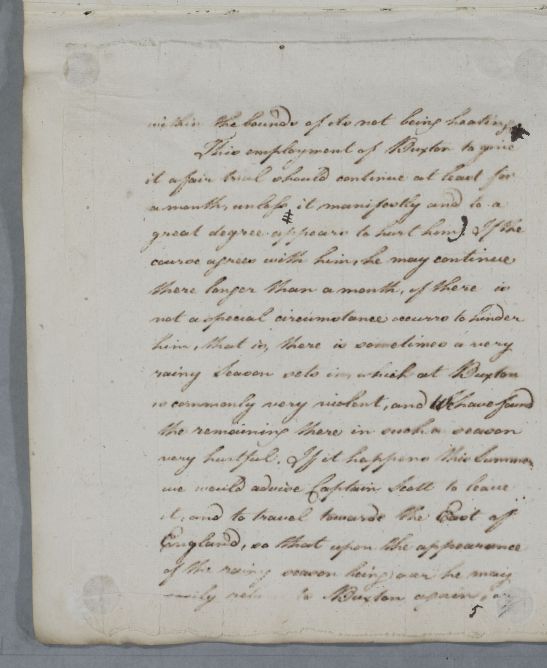 within the bounds of its not being heating.
This employment of Buxton to give
it a fair trial should continue at least for
a month, unless it manifestly and to a
great degree appears to hurt him. If the
course agrees with him, he may continue
there longer than a month, if there is
not a special circumstance occurrs to hinder
him, that is, there is sometimes a very
rainy Season sets in, which at Buxton
is commonly very violent, and We have found
the remaining there in such a season
very hurtful. If it happens this Summer
we would advise Captain Scott to leave
it, and to travel towards the East of
England, so that upon the appearance
of the rainy season being over he may
easily return to Buxton again, or
5